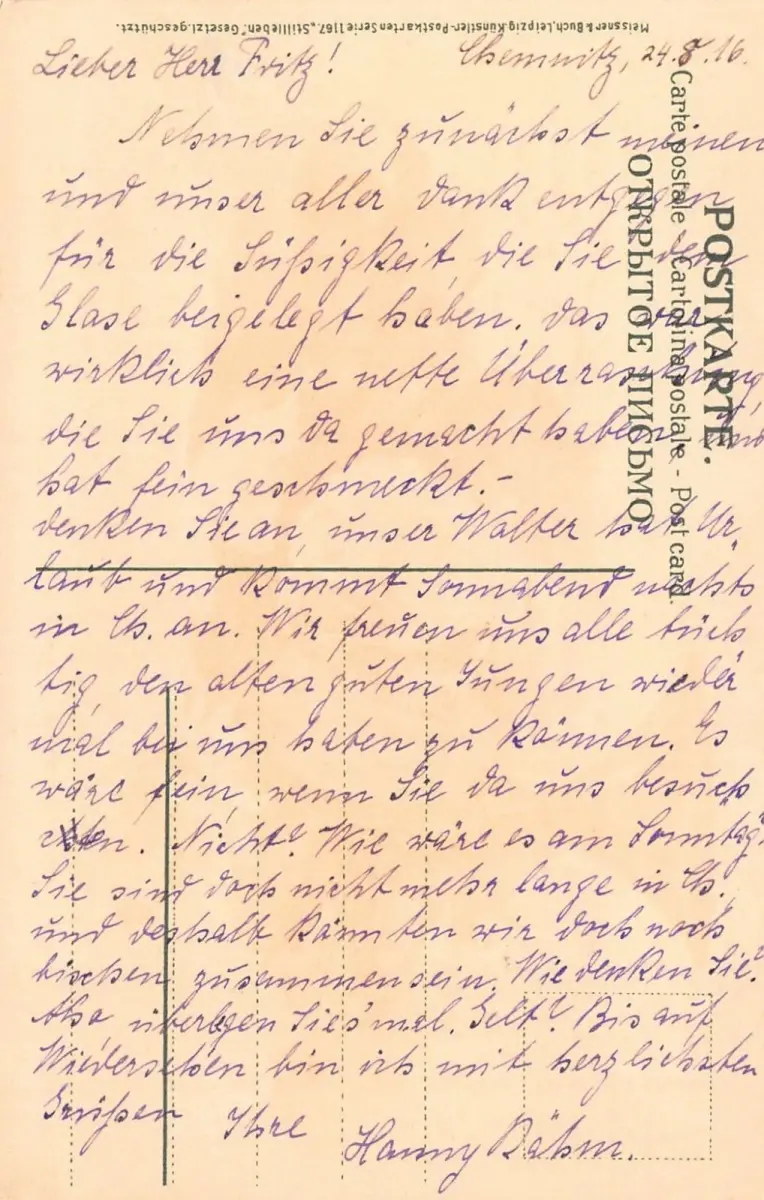 Meissner & Buch, Leipzig. Künstler-Postkarten Serie 1167. „Stillleben". Gesetzl. geschützt.
Chemnitz, 24.8.16.
Lieber Herr Fritz!
Nehmen Sie zunächst meinen
und unser aller Dank entgegen
für die Süßigkeit, die Sie dem
Glase beigelegt haben. Das war
wirklich eine nette Überraschung,
die Sie uns da gemacht haben, und
hat fein geschmeckt. –
Denken Sie an, unser Walter hat Ur-
laub und kommt Sonnabend nachts
in Ch. an. Wir freuen uns alle tüch
tig, den alten guten Jungen wieder
mal bei uns haben zu können. Es
wäre fein, wenn Sie da uns besuch
ten. Nicht? Wie wäre es am Sonntag?
Sie sind doch nicht mehr lange in Ch.
und deshalb könnten wir doch noch
bischen zusammen sein. Wie denken Sie?
Also überlegen Sie's mal. Gelt? Bis auf
Wiedersehen bin ich mit herzlichsten
Grüßen
Ihre
Hanny Böhm.
POSTKARTE.
Carte postale - Cartolina postale - Post card.
ОТКРЫТОЕ ПИСЬМО